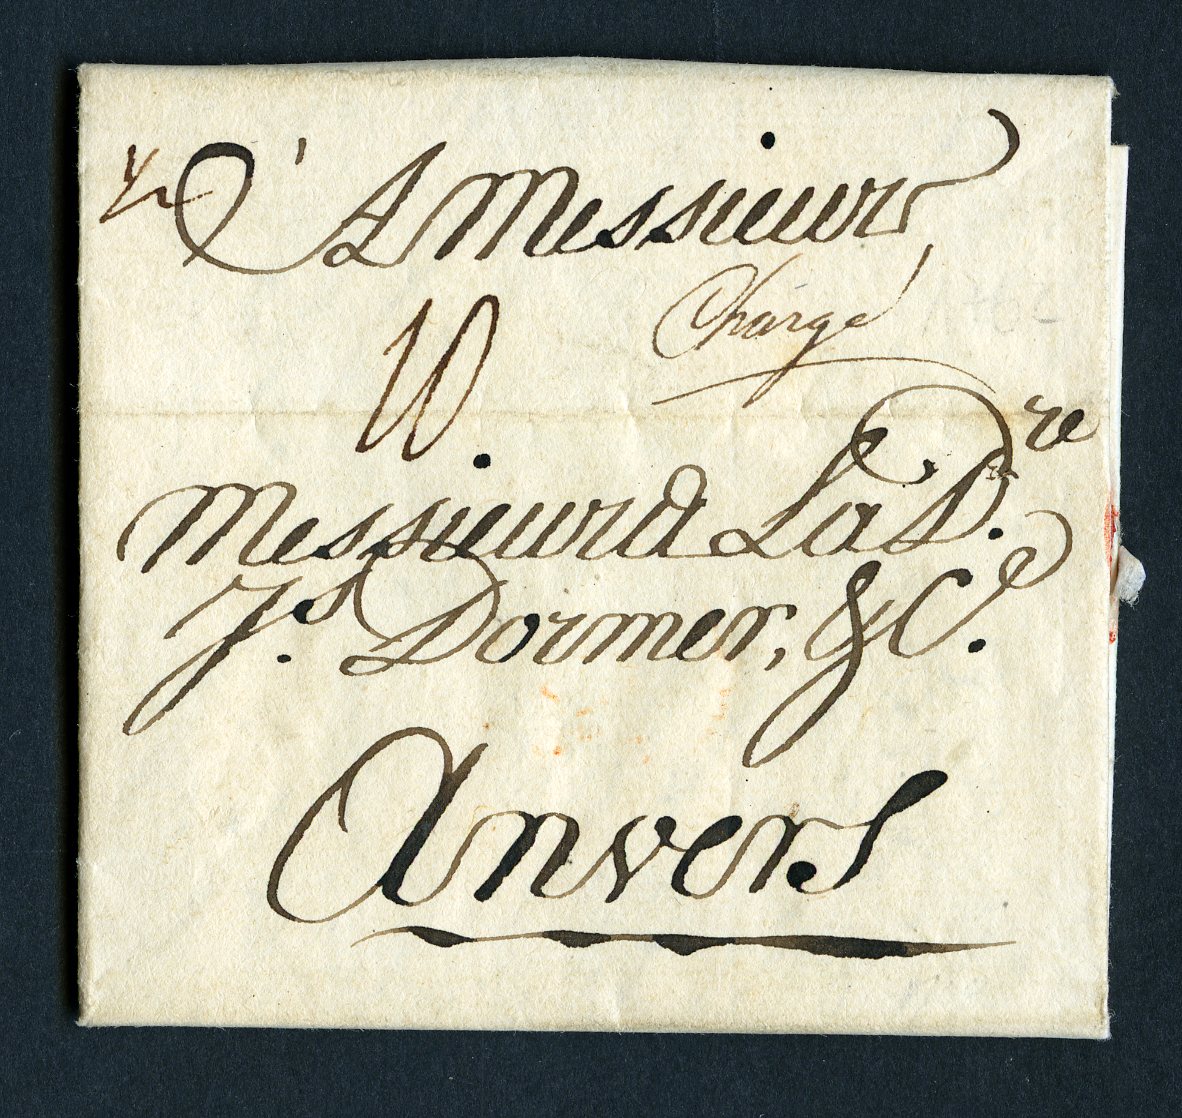 A Messieurs
Chargé
10
Messieurs La D.re
Js. Dormer, & C.e
Anvers